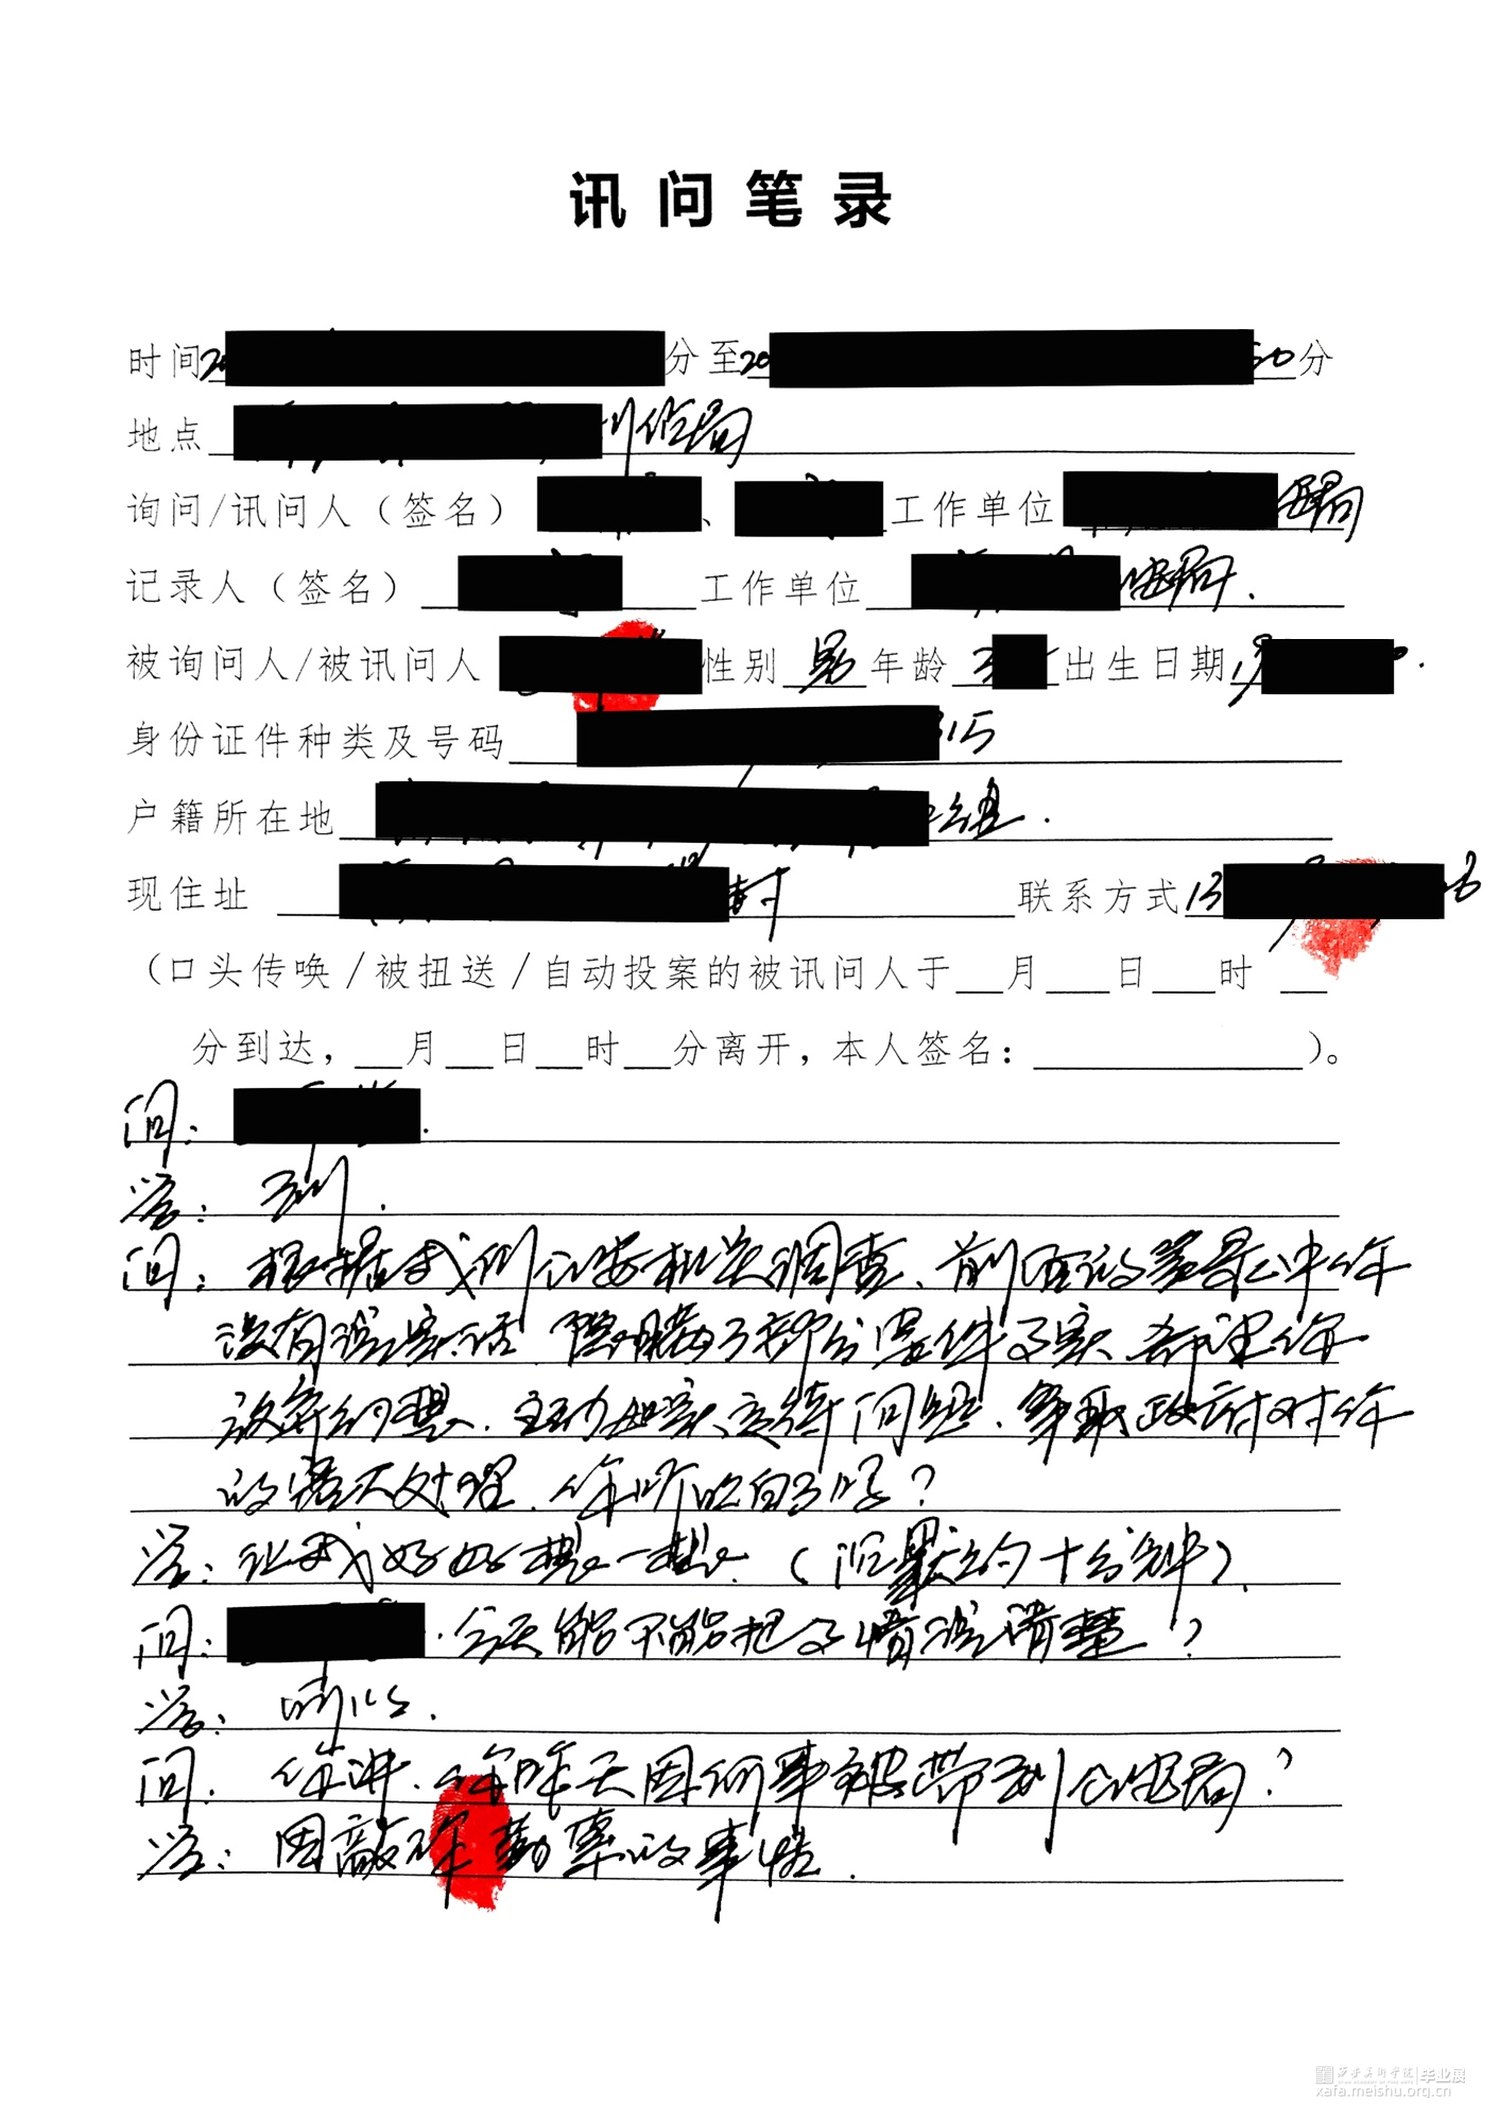 讯问笔录
时间20 分至20 50分
地点 公安局
询问/讯问人（签名） 、 工作单位 安局
记录人（签名） 工作单位 公安局.
被询问人/被讯问人 性别 男 年龄 3 出生日期 19 .
身份证件种类及号码 315
户籍所在地 组.
现住址 村 联系方式 13 6
（口头传唤/被扭送/自动投案的被讯问人于 月 日 时
分到达， 月 日 时 分离开，本人签名： ）。
问： .
答：到.
问：根据我们公安机关调查、前面的笔录中你
没有说实话 隐瞒了部分案件事实 希望你
放弃幻想、主动如实交待问题、争取政府对你
的宽大处理、你听明白了吗？
答：让我好好想一想.（沉默约十分钟）.
问： .今天能不能把事情说清楚？
答：可以.
问：你讲.你昨天因何事被带到公安局？
答：因敲诈勒索的事情.
西安美术学院 毕业展
xafa.meishu.org.cn